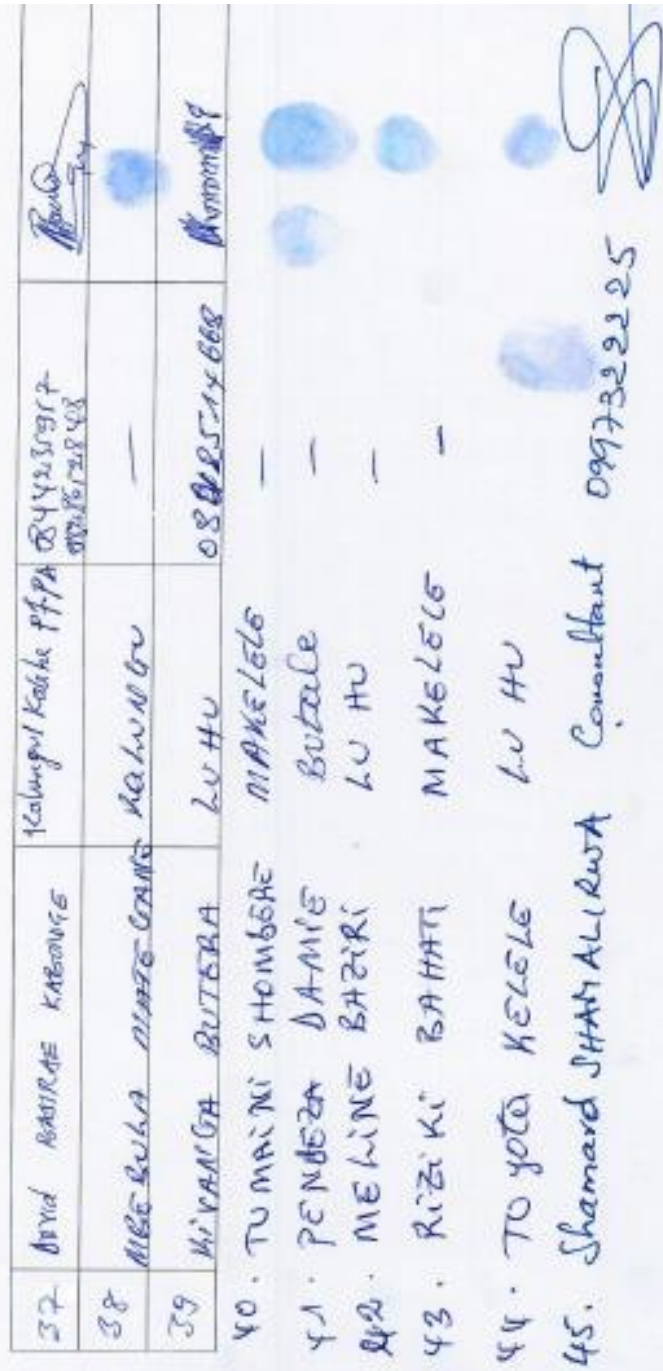 37 David KABONGE Kalungu/Kalehe PFPA 0844231917
38 KALUNGU —
39 KIVANGA BUTERA LUHU
40. TUMAINI SHOMBERE MAKELELE —
41. PENDEZA DAMIE BUZALE —
42. MELINE BAZIRI LUHU —
43. RIZIKI BAHATI MAKELELE —
44. TOYOTA KELELE LUHU
45. Shamard SHAMALIRWA Consultant 0997322225